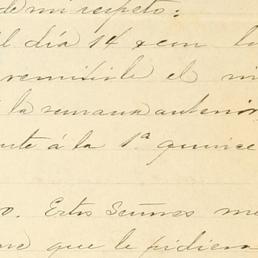 de mi respeto:
l día 14 & con lo
remitirle el mi
la semana anterior
te á la 1ª quince
o. Estos Señores me
ue que le pidiera